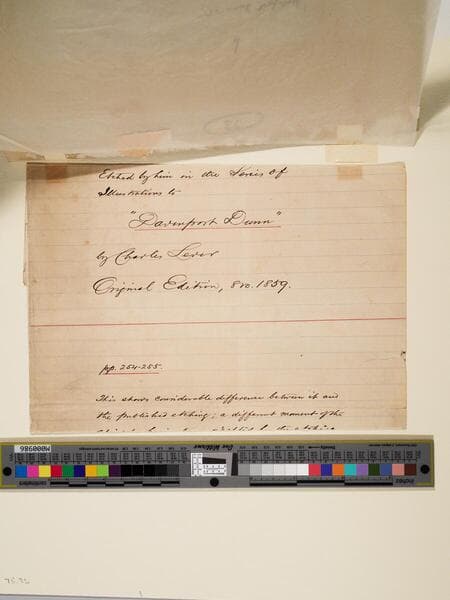 Etched by him in the Series of
Illustrations to
"Davenport Dunn"
by Charles Lever
Original Edition, 8vo. 1859.
pp. 254-255.
This shows considerable difference between it and
the published etching; a different moment of the
M000986
centimeters
inches
75.72